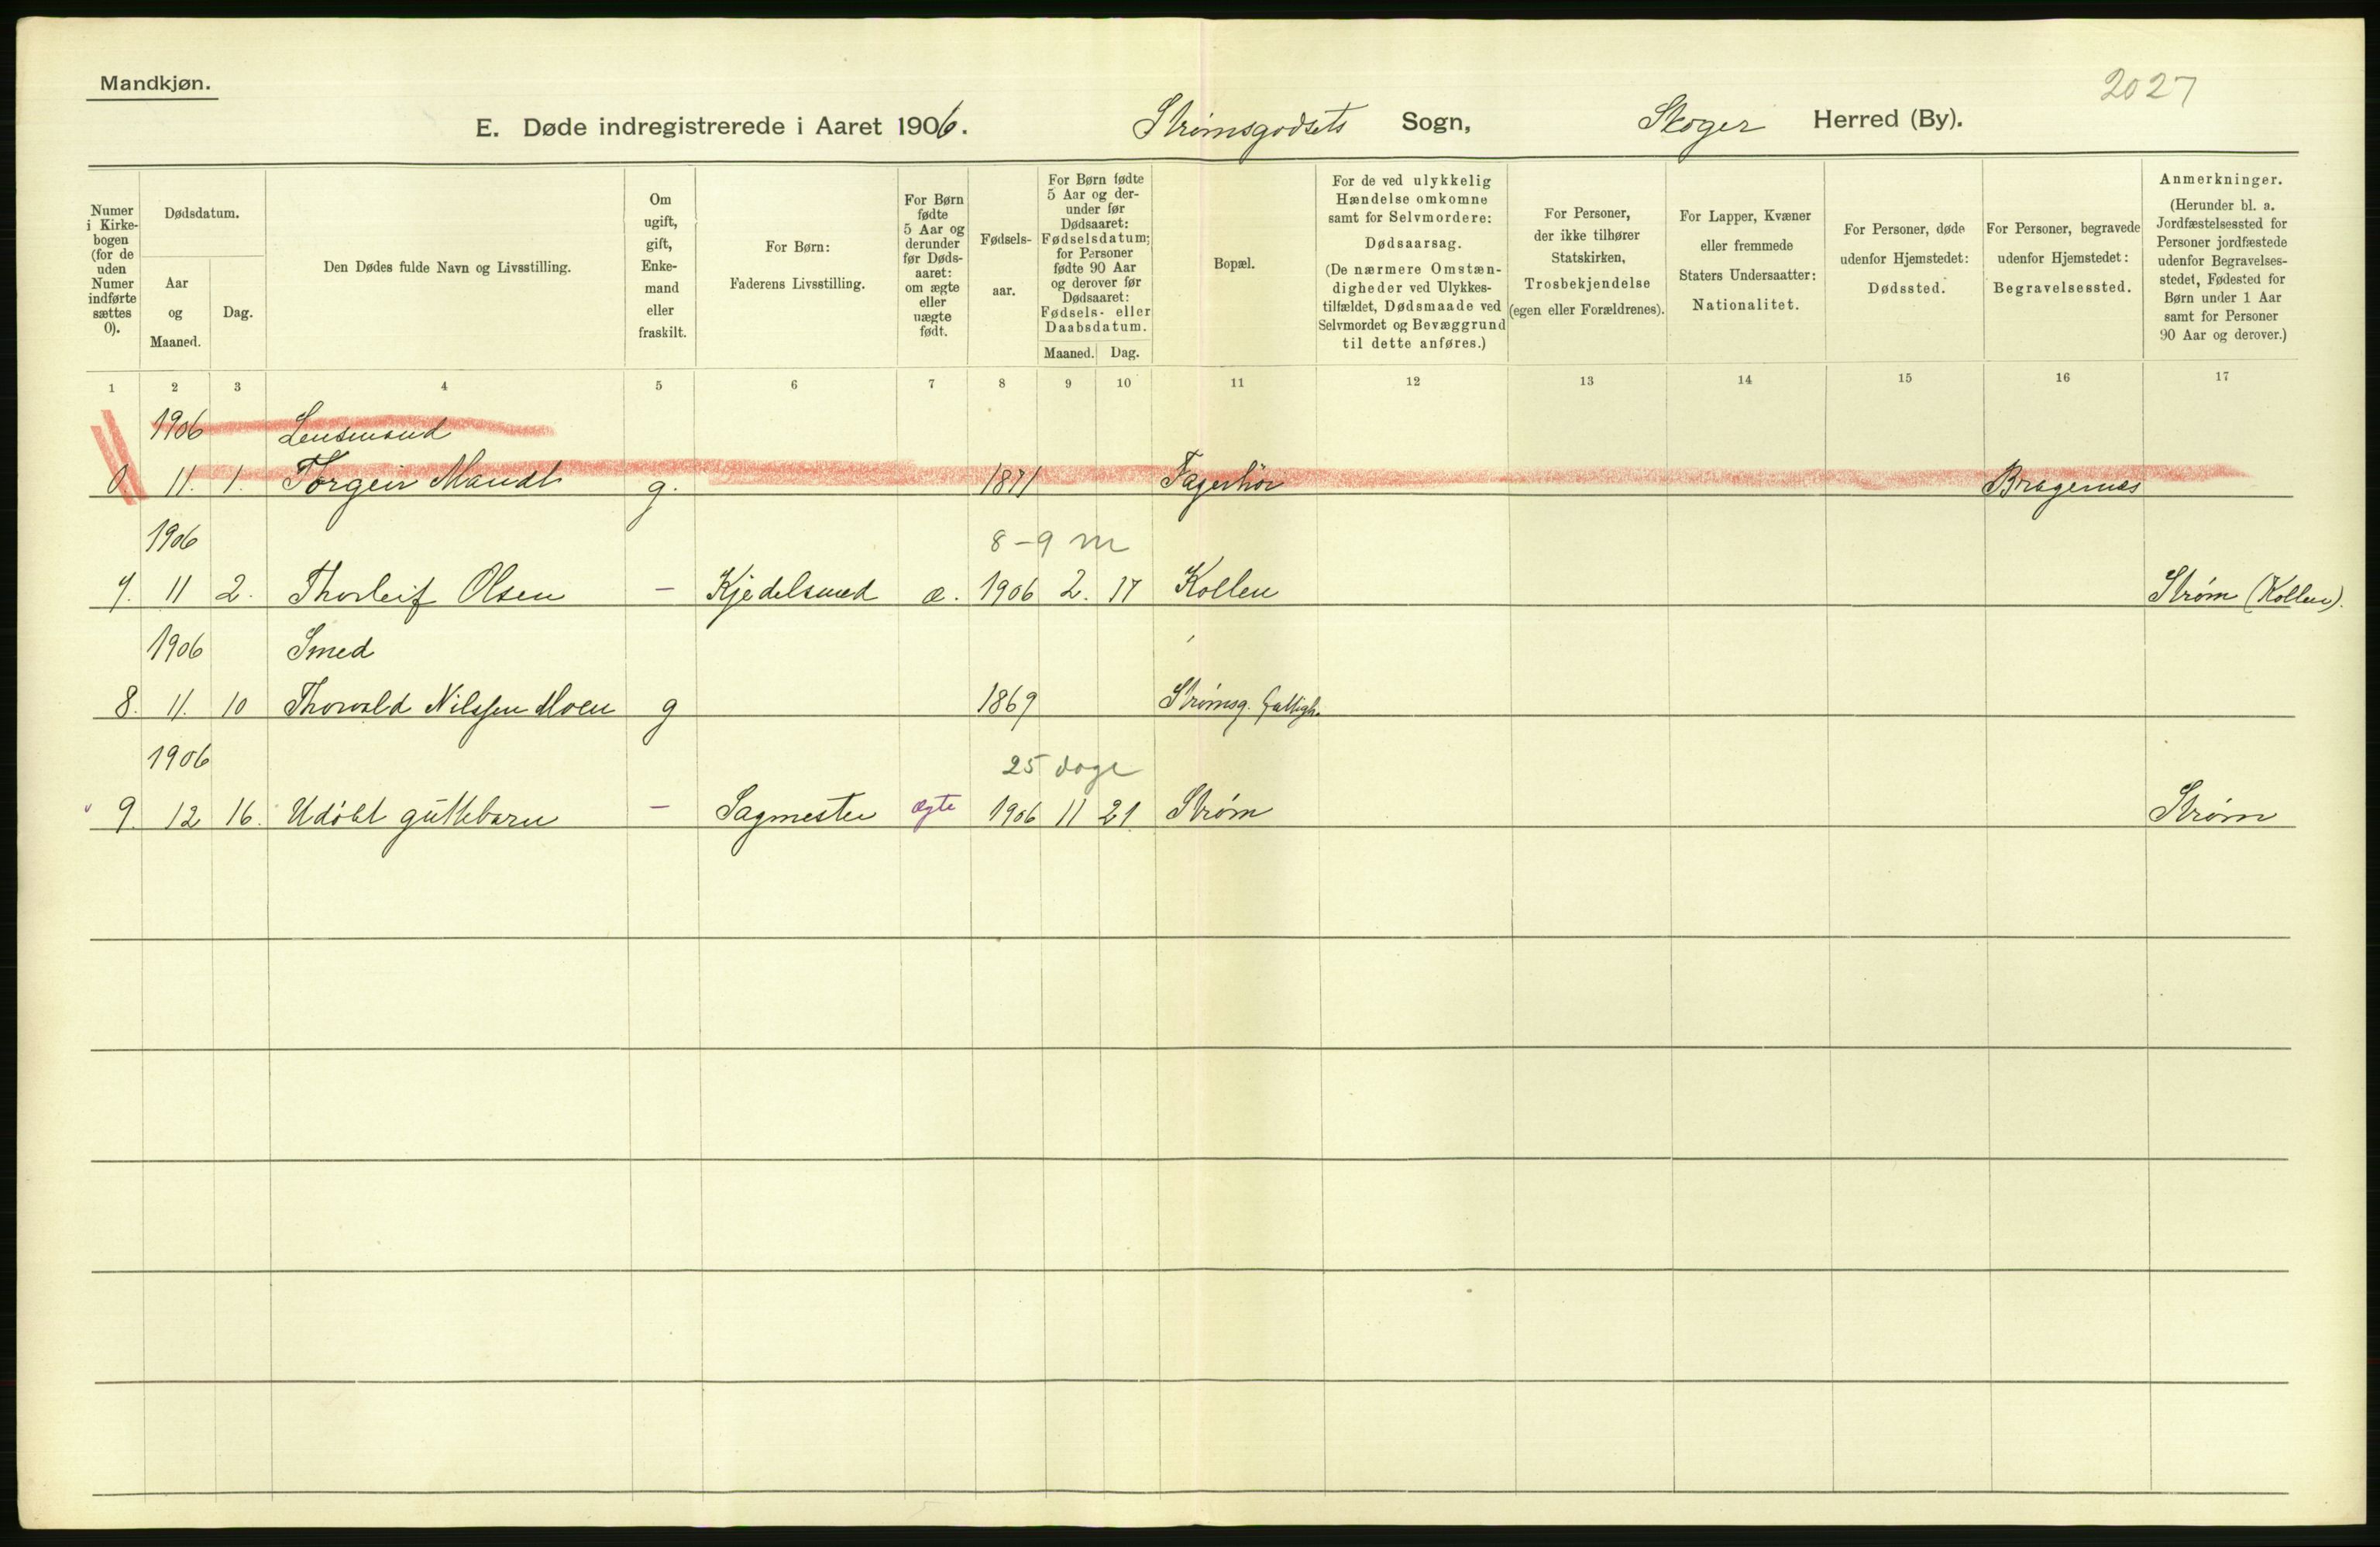 Mandkjøn.
2027
E. Døde indregistrerede i Aaret 1906. Strømsgodsets Sogn, Skoger Herred (By).
Numer i Kirkebogen (for de uden Numer indførte sættes 0).
Dødsdatum.
Aar og Maaned.
Dag.
Den Dødes fulde Navn og Livsstilling.
Om ugift, gift, Enkemand eller fraskilt.
For Børn: Faderens Livsstilling.
For Børn fødte 5 Aar og derunder før Dødsaaret: om ægte eller uægte født.
Fødselsaar.
For Børn fødte 5 Aar og derunder før Dødsaaret: Fødselsdatum; for Personer fødte 90 Aar og derover før Dødsaaret: Fødsels- eller Daabsdatum.
Maaned. Dag.
Bopæl.
For de ved ulykkelig Hændelse omkomne samt for Selvmordere: Dødsaarsag. (De nærmere Omstændigheder ved Ulykkestilfældet, Dødsmaade ved Selvmordet og Bevæggrund til dette anføres.)
For Personer, der ikke tilhører Statskirken, Trosbekjendelse (egen eller Forældrenes).
For Lapper, Kvæner eller fremmede Staters Undersaatter: Nationalitet.
For Personer, døde udenfor Hjemstedet: Dødssted.
For Personer, begravede udenfor Hjemstedet: Begravelsessted.
Anmerkninger. (Herunder bl. a. Jordfæstelsessted for Personer jordfæstede udenfor Begravelsesstedet, Fødested for Børn under 1 Aar samt for Personer 90 Aar og derover.)
1 2 3 4 5 6 7 8 9 10 11 12 13 14 15 16 17
1906 Lensmand
0 11. 1. Torgeir Mandt g. 1871 Bragernes
1906 8-9 m
7. 11 2. Thorleif Olsen - Kjedelsmed æ. 1906 2. 17 Kollen Strøm (Kollen).
1906 Smed
8. 11. 10 Thorvald Nilssen Moen g 1869 Strømsg. fattigh.
1906 25 dage
9. 12 16. Udøbt guttebarn - Sagmester ægte 1906 11 21 Strøm Strøm